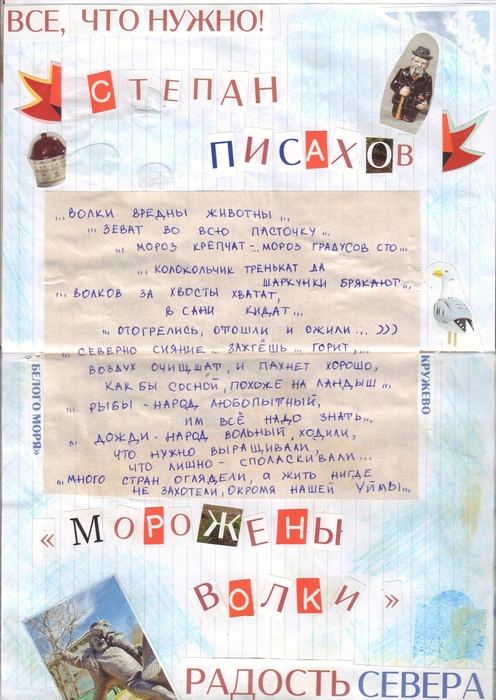 ВСЕ, ЧТО НУЖНО!
СТЕПАН
ПИСАХОВ
„... ВОЛКИ ВРЕДНЫ ЖИВОТНЫ ...
... ЗЕВАТ ВО ВСЮ ПАСТОЧКУ ...
МОРОЗ КРЕПЧАТ - ... МОРОЗ ГРАДУСОВ СТО ...
... КОЛОКОЛЬЧИК ТРЕНЬКАТ ДА
ШАРКУНКИ БРЯКАЮТ ...
... ВОЛКОВ ЗА ХВОСТЫ ХВАТАТ,
В САНИ КИДАТ ...
... ОТОГРЕЛИСЬ, ОТОШЛИ И ОЖИЛИ ... )))
... СЕВЕРНО СИЯНИЕ ... ЗАЖГЁШЬ ... ГОРИТ, ...
ВОЗДУХ ОЧИЩШАТ, И ПАХНЕТ ХОРОШО,
КАК БЫ СОСНОЙ, ПОХОЖЕ НА ЛАНДЫШ ...
... РЫБЫ - НАРОД ЛЮБОПЫТНЫЙ,
ИМ ВСЁ НАДО ЗНАТЬ ...
... ДОЖДИ - НАРОД ВОЛЬНЫЙ, ХОДИЛИ,
ЧТО НУЖНО ВЫРАЩИВАЛИ,
ЧТО ЛИШНО - СПОЛАСКИВАЛИ ...
... МНОГО СТРАН ОГЛЯДЕЛИ, А ЖИТЬ НИГДЕ
НЕ ЗАХОТЕЛИ, ОКРОМЯ НАШЕЙ УЙМЫ ...
БЕЛОГО МОРЯ»
КРУЖЕВО
« МОРОЖЕНЫ
ВОЛКИ »
РАДОСТЬ СЕВЕРА